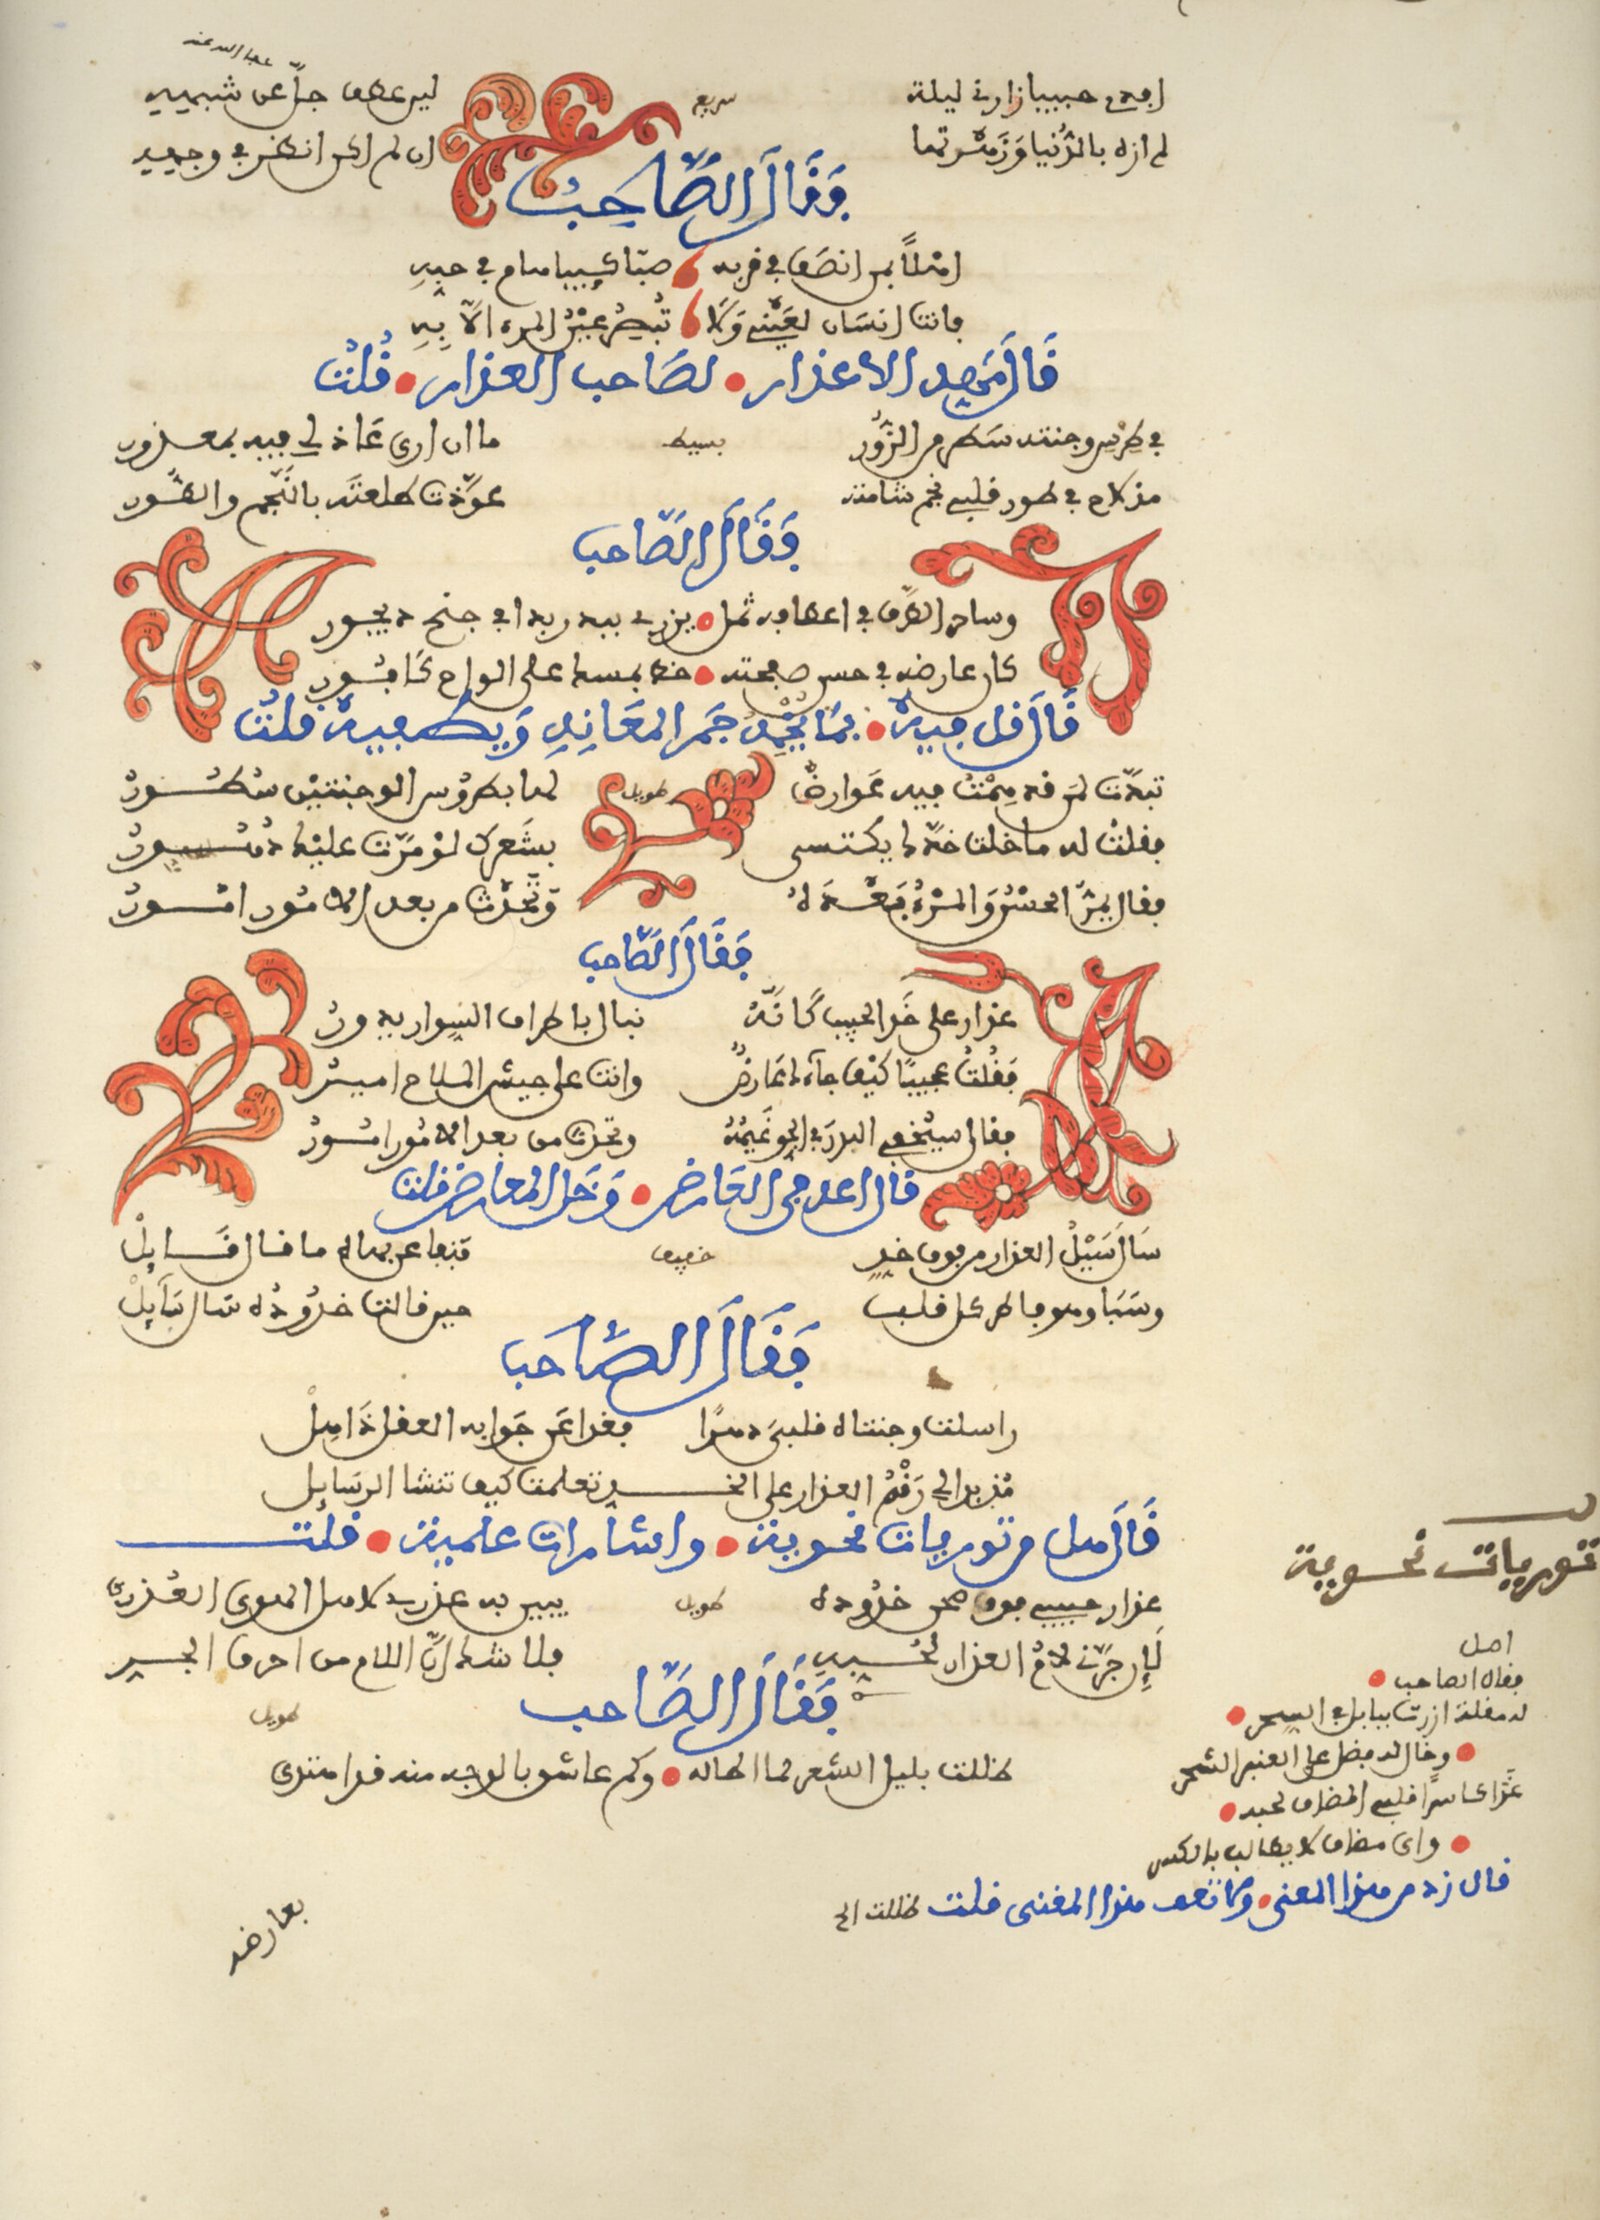 عفا الله عنه
افدي حبيبا زارني ليلة سريع ليعطف جل عن شبهيه
لم ازه بالدنيا وزهرتها ان لم اكن انظر في وجهيه
فَقَالَ الصَّاحِبُ
اهلاً بمن انصف في قربه صبّا كئيبا هام في حبه
فانت انسان لعيني ولا تبصر عين المرء الا به
قَالَ مهد الاعذار لصَاحب العذار قُلتُ
في طرس وجنته سطر من الزور بسيط ما ان ارى عاذلي فيه بمعذور
مذ لاح في طور قلبي نجم شامته عوّذت طلعته بالنّجم والطّور
فَقَالَ الصَّاحب
وساحر الطرف في اعطافه ثمل يزري ببدر بدا في جنح ديجور
كان عارضه في حسن صفحته خط بمسك على الواح كافور
قَالَ قل فيه بمَا يُخْمِدُ جَمر المعَانِدِ وَيطفيه قلتُ
تبدّت لمن قد همْتُ فيه عوارضٌ طويل لها بطروس الوجنتين سُطُورُ
فقلتُ له ما خلت خدّك يكتسى بشَعرك لوْ مرّت عليْك دُهُورُ
فقال يمرّ الحسْنُ وَالمرْءُ بَعْدَهُ وتحدُث من بعد الامُور امُورُ
فَقَالَ الصَّاحب
عذار على خَد الحبيب كَانّهُ نبال باطراف السوار يدورُ
فَقُلتُ عجيبًا كيْف جآءك عَارضٌ وانت على جيش الملاح اميرُ
فقال سيُخفى البدرَ في الجو غَيمُهُ وتحدث من بعد الامُور امُورُ
قال اعد في العَارض وَخَل المعارض قلت
سَالَ سَيْلُ العذار من فوق خد خفيف قتبعا عن جماله ما قال قَايلْ
وسَبَا وهو جاهر كل قلب حين قالت خدُودُه سَال سَآيلْ
فَقَالَ الصَّاحب
راسلت وجنتاه قلبيَ دهرًا فغدا عَن جَوابه العقل ذَاهِلْ
مُذ بدا لي رَقْمُ العذار على الخد تعلمت كيف تنشا الرسَايل
قَالَ هل من توريات نحوية واشارات علمية قلت
عذار حبيبي فوق صحن خدُوده طويل يبين به عذري لاهل الهوى العُذري
لَإن جرّني لامُ العذار لحُبه فلا شك انّ اللام من احرف الجر
فَقَالَ الصَّاحب
ظللت بليل الشعر لما اطاله وكم عاشق بالوجه منه قد اهتدى طويل
بعارضه
توريات نحوية
اصل
فقال الصاحب
له مقلة ازرت ببابل في السحر
وخال له فضل على العنبر الشحر
غدا كاسرا قلبي المضاف لحبه
واي مضاف لا يطالب بالكسر
قال زد من هذا المعنى وكاتعف هذا المغنى قلت ظللت الخ